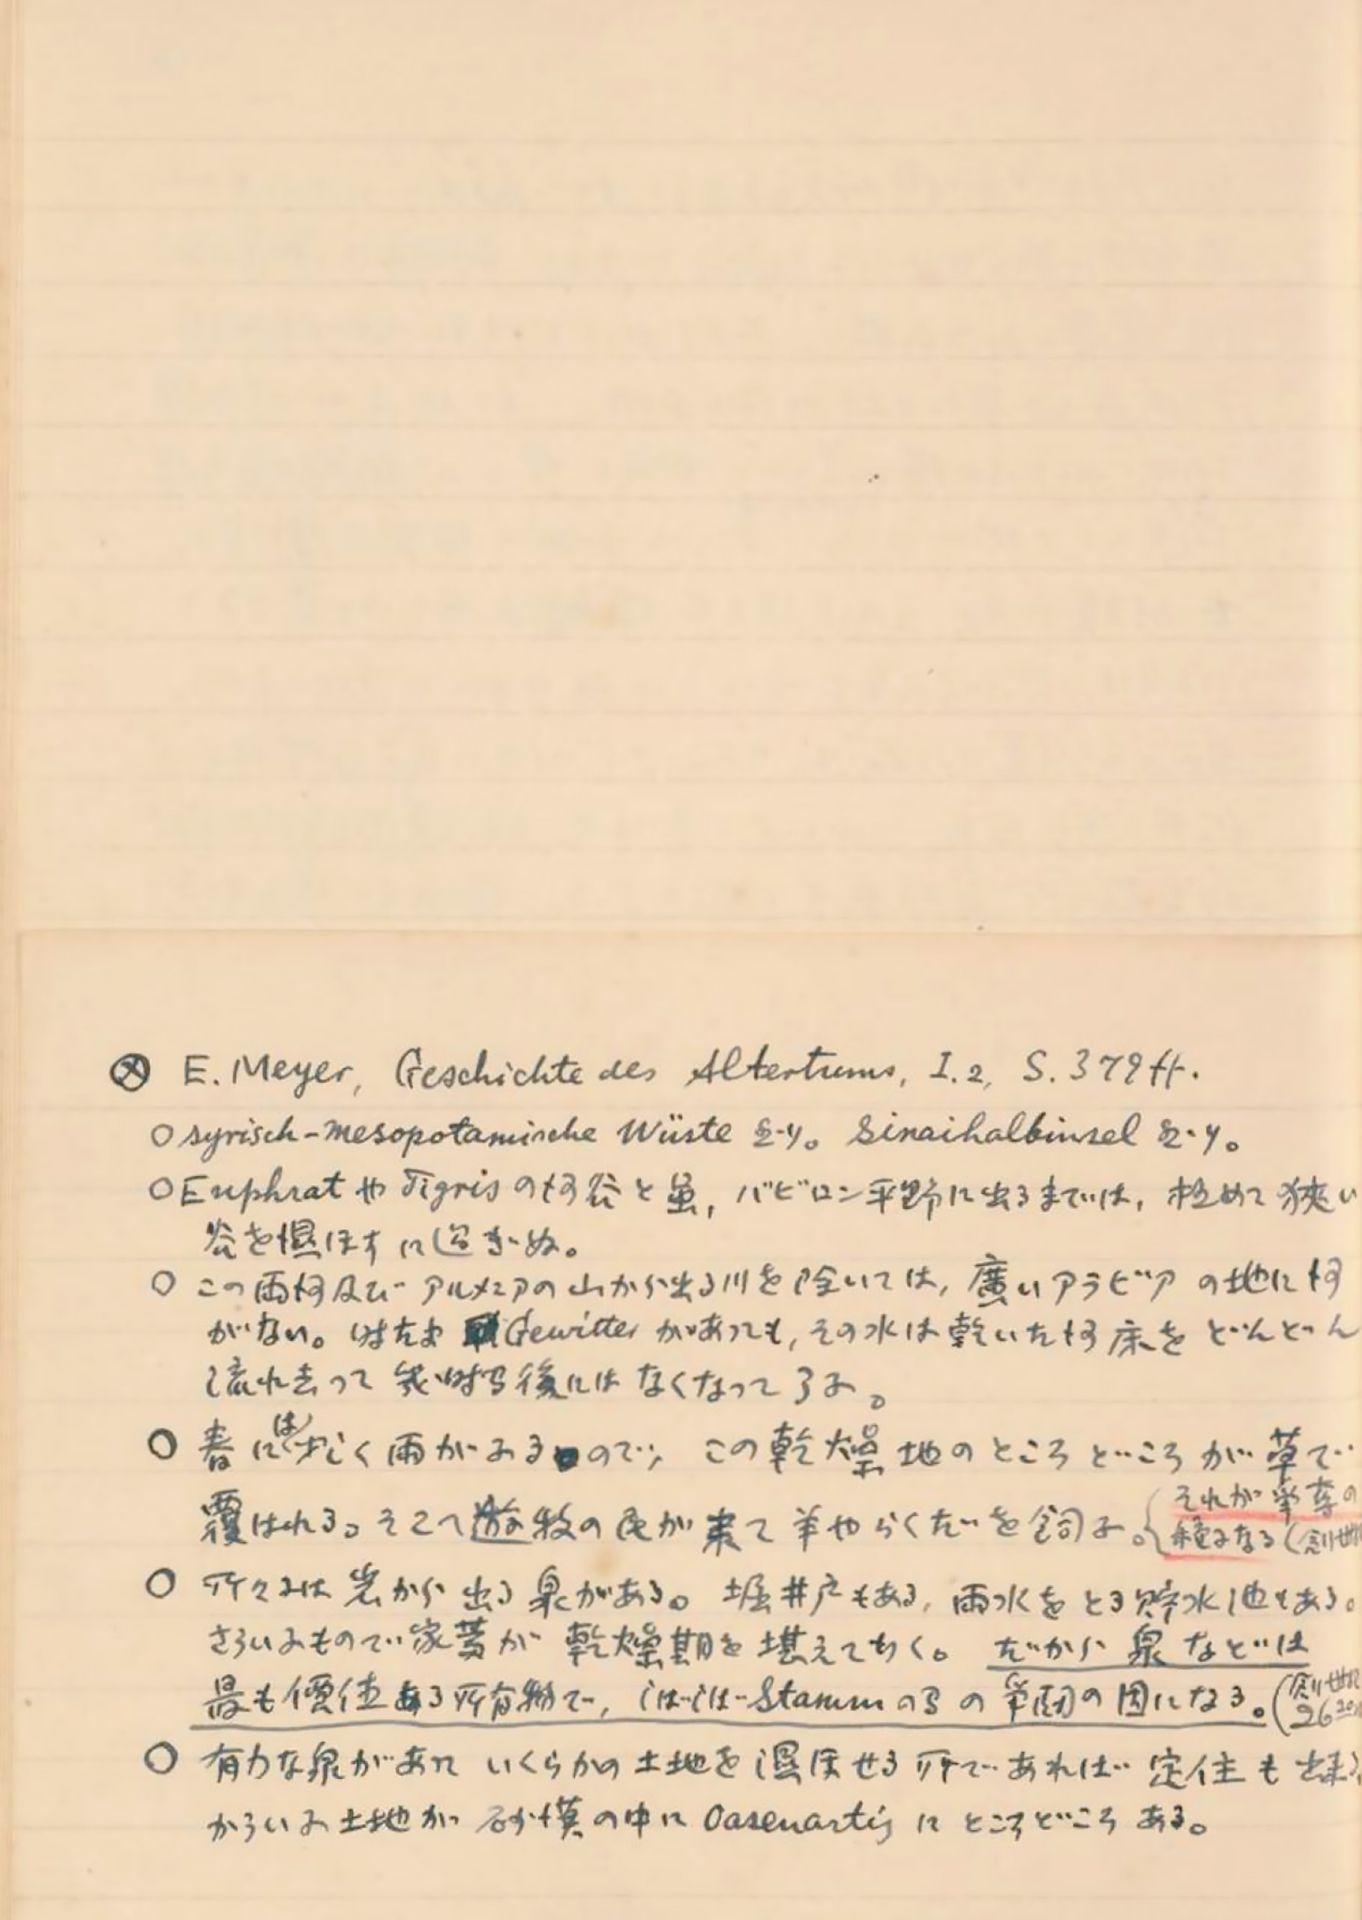 ⊗ E. Meyer, Geschichte des Altertums, I.2, S. 379 ff.
○ syrisch-mesopotamische Wüste と. Sinaihalbinsel と.
○ Euphrat や Tigris の河谷と虽, バビロン平野に出るまでは, 極めて狭い
谷を湿ほすに過ぎぬ。
○ この両河及びアルメニアの山から出る川を除いては, 廣いアラビアの地に河
がない。はたま Gewitter があっても, その水は乾いた河床をどんどん
流れ去って 幾時間後にはなくなって了ふ。
○ 春には少しく雨がふるので, この乾燥地のところどころが草で
覆はれる。そこへ遊牧の民が来て羊やらくだを飼ふ。
{それが争奪の
種になる (創世
○ 所々には岩から出る泉がある。堀井戸もある, 雨水をとる貯水池もある。
さういふもので家畜が乾燥期を堪えてゆく。だから泉などは
最も價値ある所有物で, しばしば Stamm の間の争闘の因になる。(創世記
26 20
○ 有力な泉があって いくらかの土地を湿ほせる所であれば 定住も出来る
かういふ土地が砂漠の中に Oasenartig にところどころある。